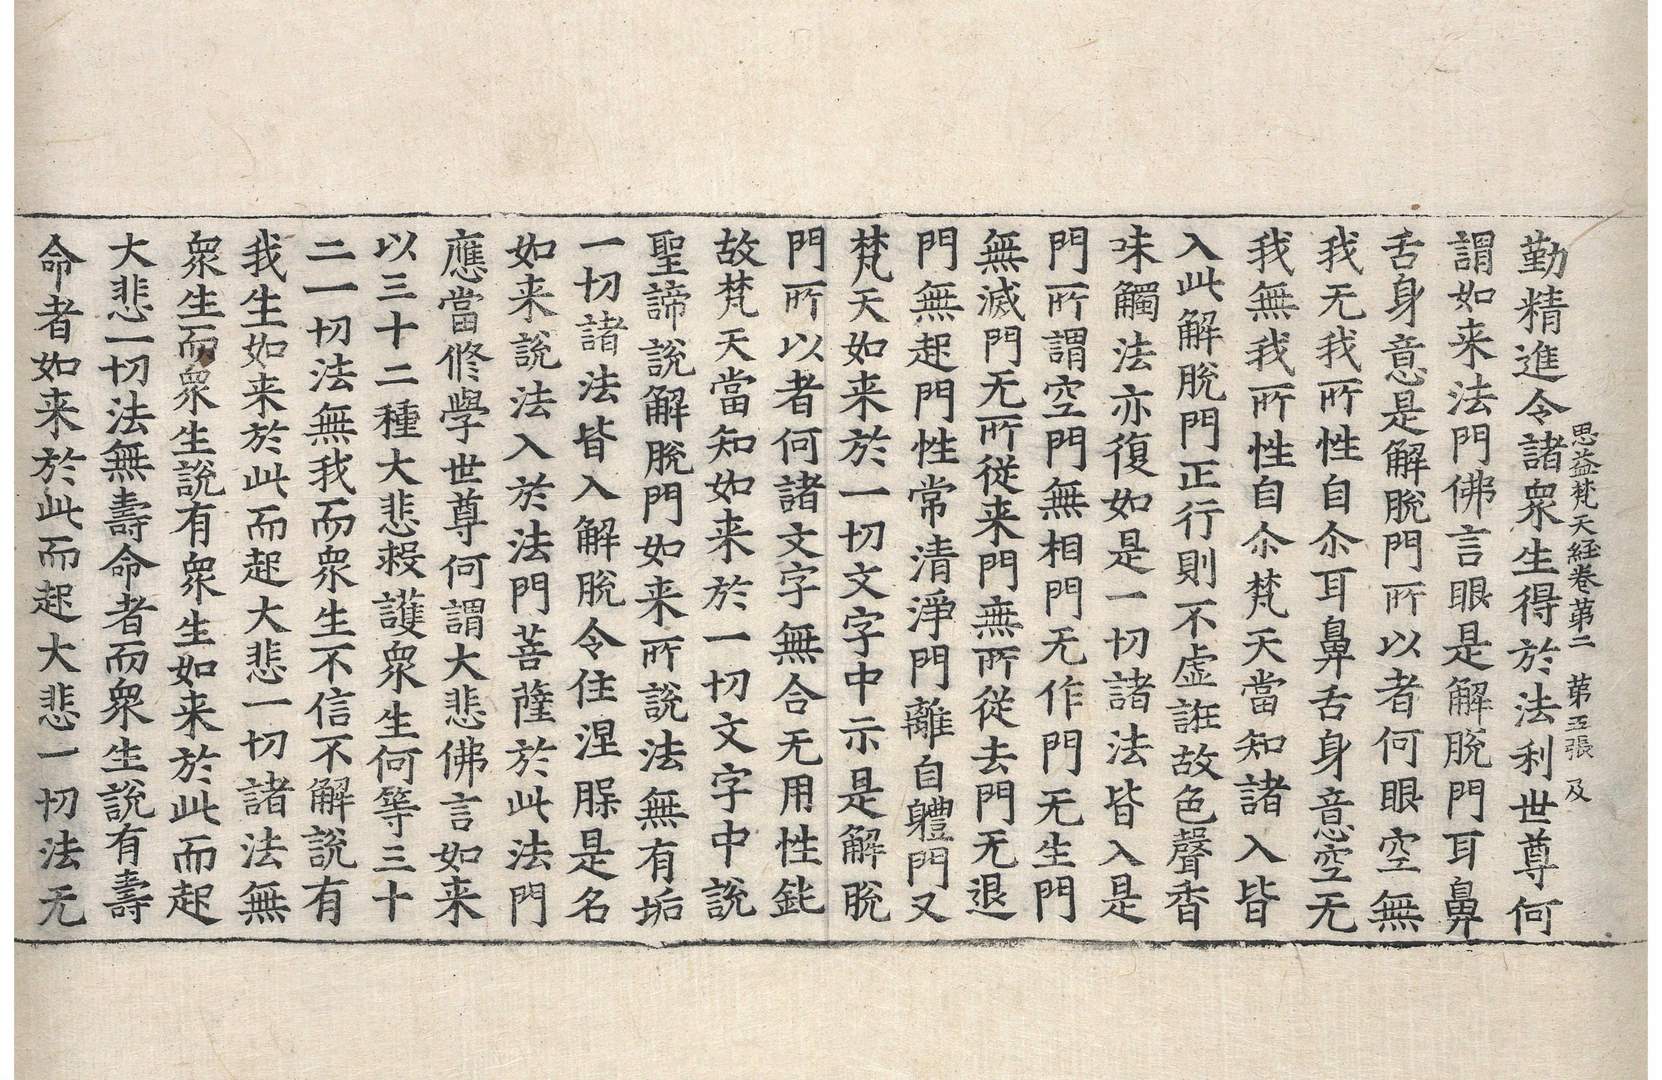 思益梵天經卷第二 第五張 及
勤精進令諸衆生得於法利世尊何
謂如来法門佛言眼是解脫門耳鼻
舌身意是解脫門所以者何眼空無
我无我所性自尒耳鼻舌身意空无
我無我所性自尒梵天當知諸入皆
入此解脫門正行則不虛誑故色聲香
味觸法亦復如是一切諸法皆入是
門所謂空門無相門无作門无生門
無滅門无所從来門無所從去門无退
門無起門性常清淨門離自軆門又
梵天如来於一切文字中示是解脫
門所以者何諸文字無合无用性鈍
故梵天當知如来於一切文字中說
聖諦說解脫門如来所說法無有垢
一切諸法皆入解脫令住涅槃是名
如来說法入於法門菩薩於此法門
應當脩學世尊何謂大悲佛言如来
以三十二種大悲救護衆生何等三十
二一切法無我而衆生不信不解說有
我生如来於此而起大悲一切諸法無
衆生而衆生說有衆生如来於此而起
大悲一切法無壽命者而衆生說有壽
命者如来於此而起大悲一切法无